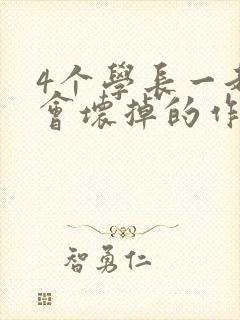 4个學長一
會壞掉的作
智勇仁